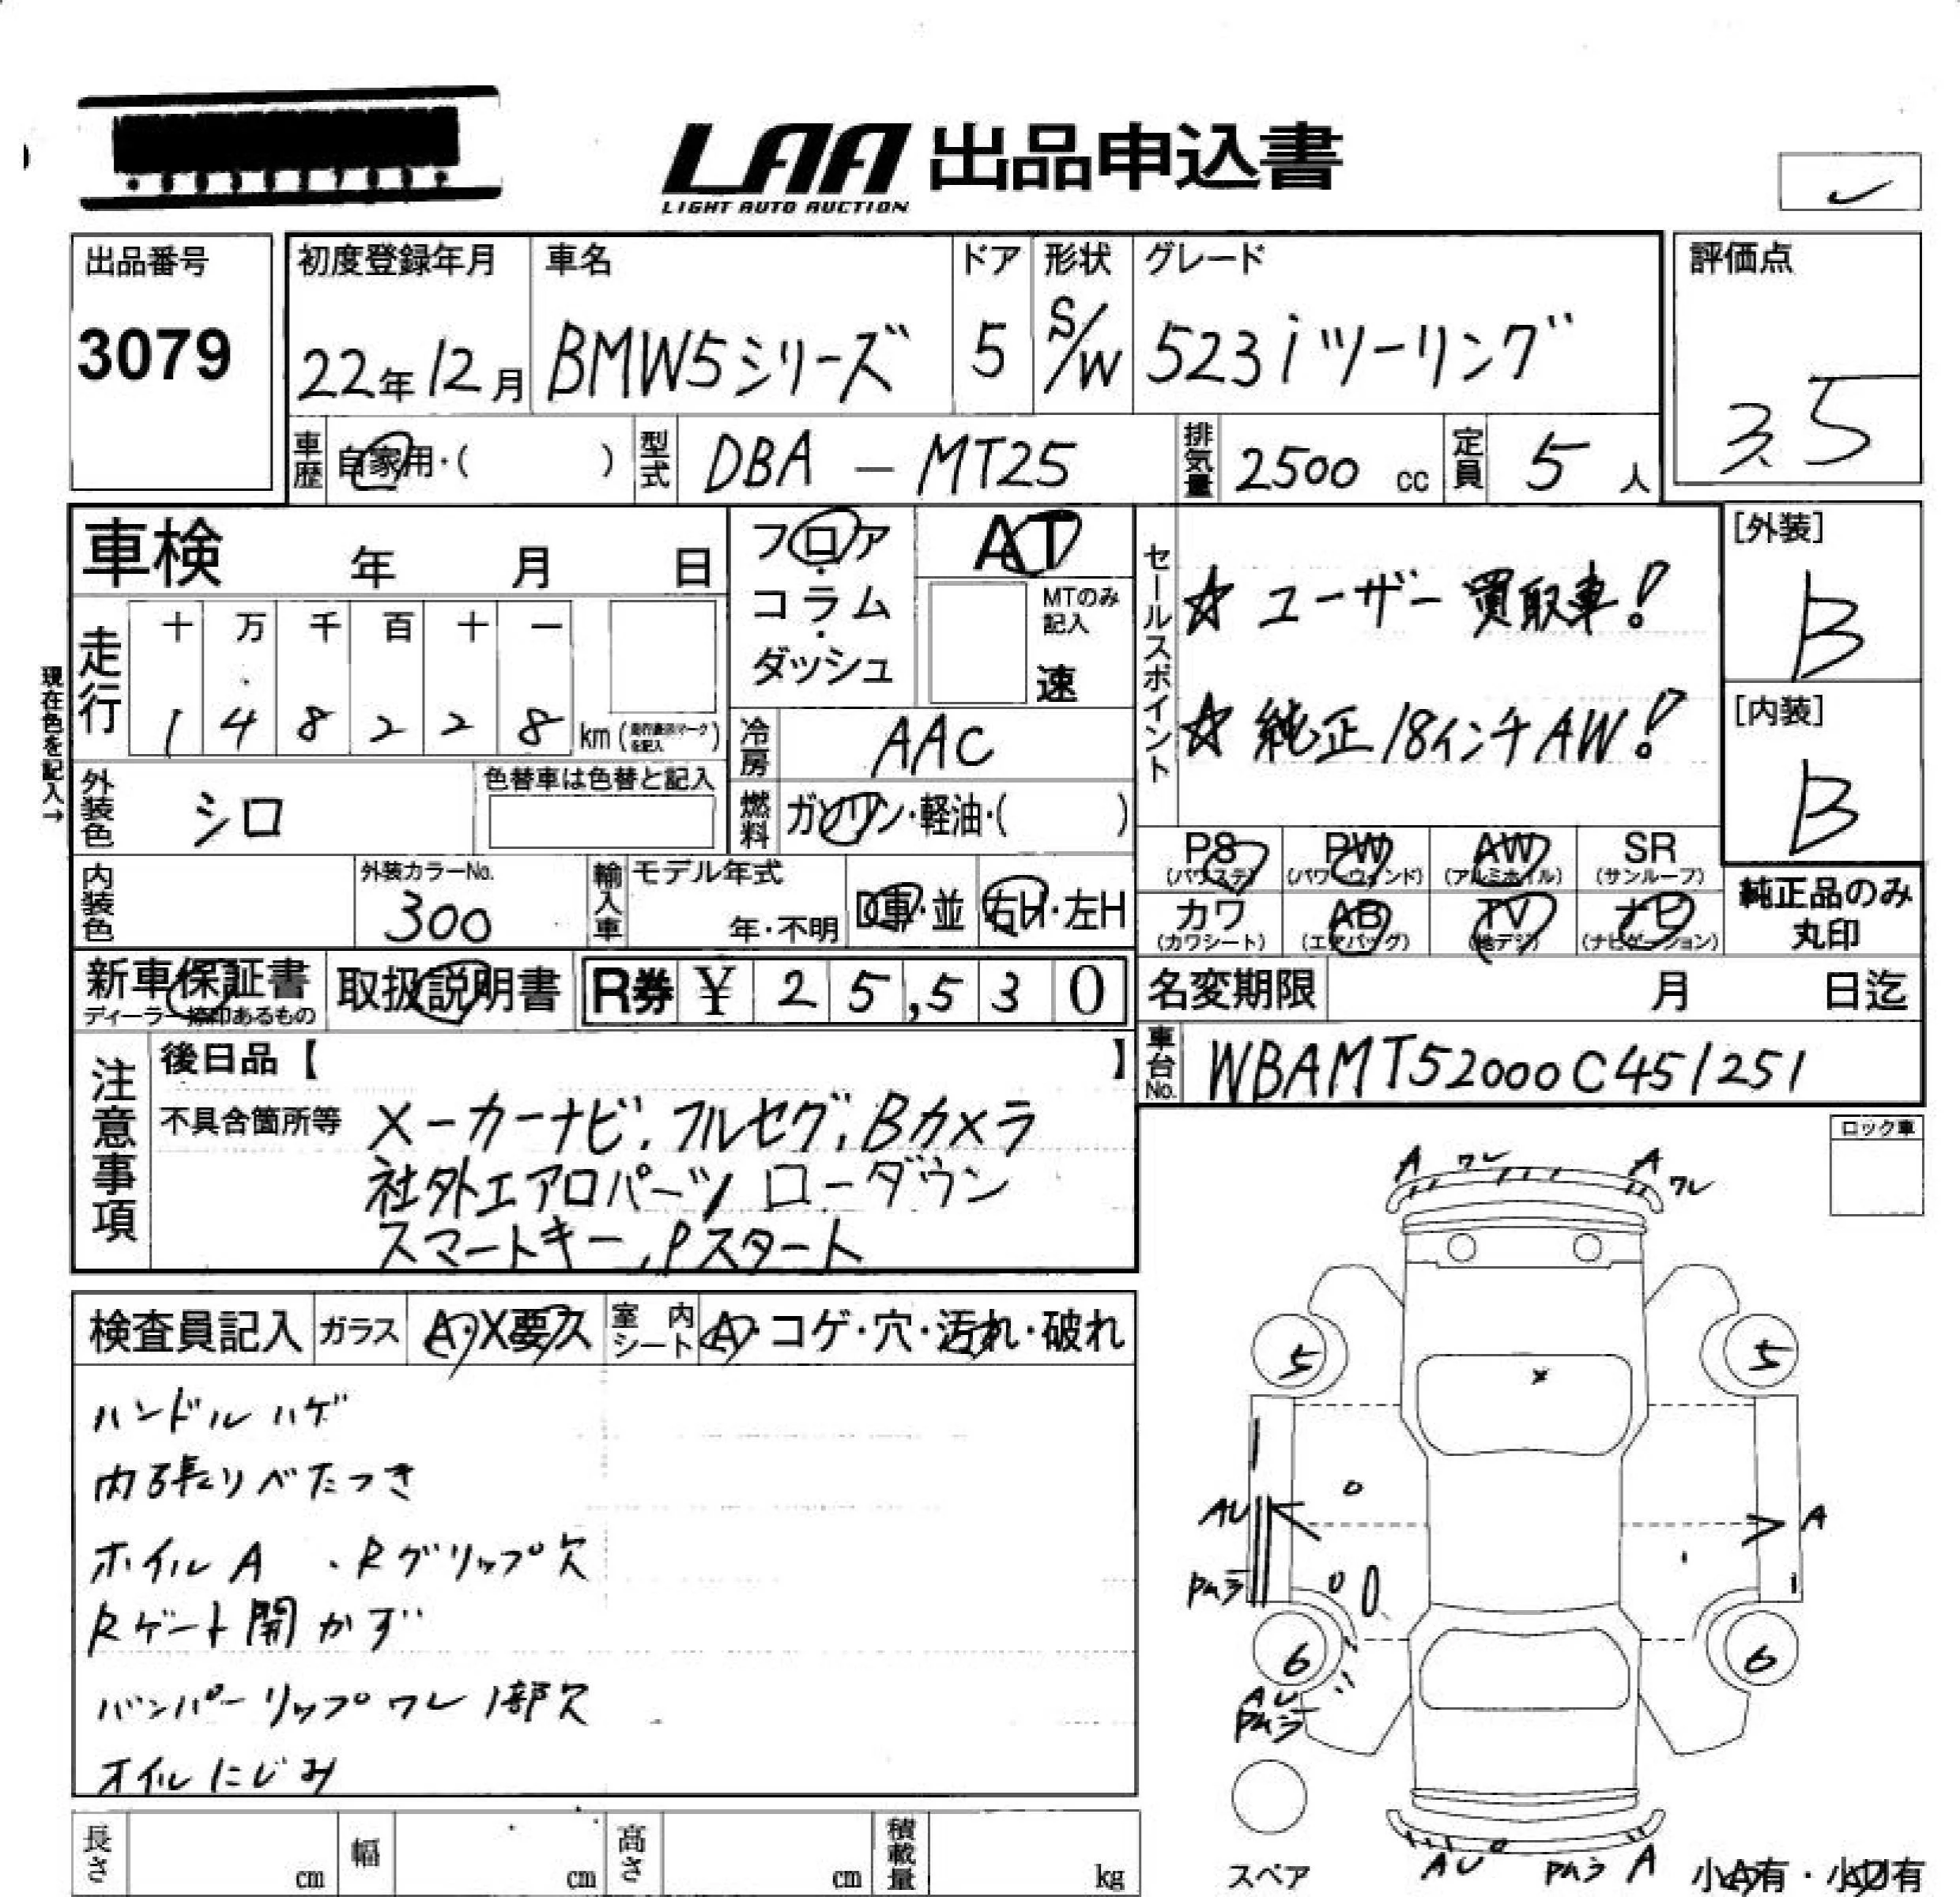 LAA 出品申込書
LIGHT AUTO AUCTION
出品番号
3079
初度登録年月
22年12月
車名
BMW5シリーズ
ドア
5
形状
S/W
グレード
523iツーリング
評価点
3.5
車歴
自家用・( )
型式
DBA - MT25
排気量
2500 cc
定員
5 人
車検 年 月 日
フロア・コラム・ダッシュ
AT
MTのみ記入
速
セールスポイント
☆ ユーザー買取車!
☆ 純正18インチAW!
[外装]
B
[内装]
B
現在色を記入→
走行
十 万 千 百 十 一
1 4 8 2 2 8 km
冷房
AAC
外装色
シロ
色替車は色替と記入
燃料
ガソリン・軽油・( )
内装色
外装カラーNo.
300
輸入車
モデル年式
年・不明
D車・並
右H・左H
PS (パワステ)
PW (パワーウィンド)
AW (アルミホイル)
SR (サンルーフ)
カワ (カワシート)
AB (エアバッグ)
TV (地デジ)
ナビ (ナビゲーション)
純正品のみ
丸印
新車保証書
ディーラー捺印あるもの
取扱説明書
R券 ¥ 25,530
名変期限 月 日迄
車台No.
WBAMT52000C451251
注意事項
後日品【 】
不具合箇所等
メーカーナビ、フルセグ、Bカメラ
社外エアロパーツ ローダウン
スマートキー、Pスタート
ロック車
検査員記入
ガラス
A・X要欠
室内シート
A・コゲ・穴・汚れ・破れ
ハンドルハゲ
内張りべたつき
ホイルA ・Rグリップ欠
Rゲート開かず
バンパーリップワレ1部欠
オイルにじみ
A ワレ A ワレ
5 5
x
AU A
PAう
6 6
AU
PAう
AU PAう A
スペア
小A有・小U有
長さ cm
幅 cm
高さ cm
積載量 kg